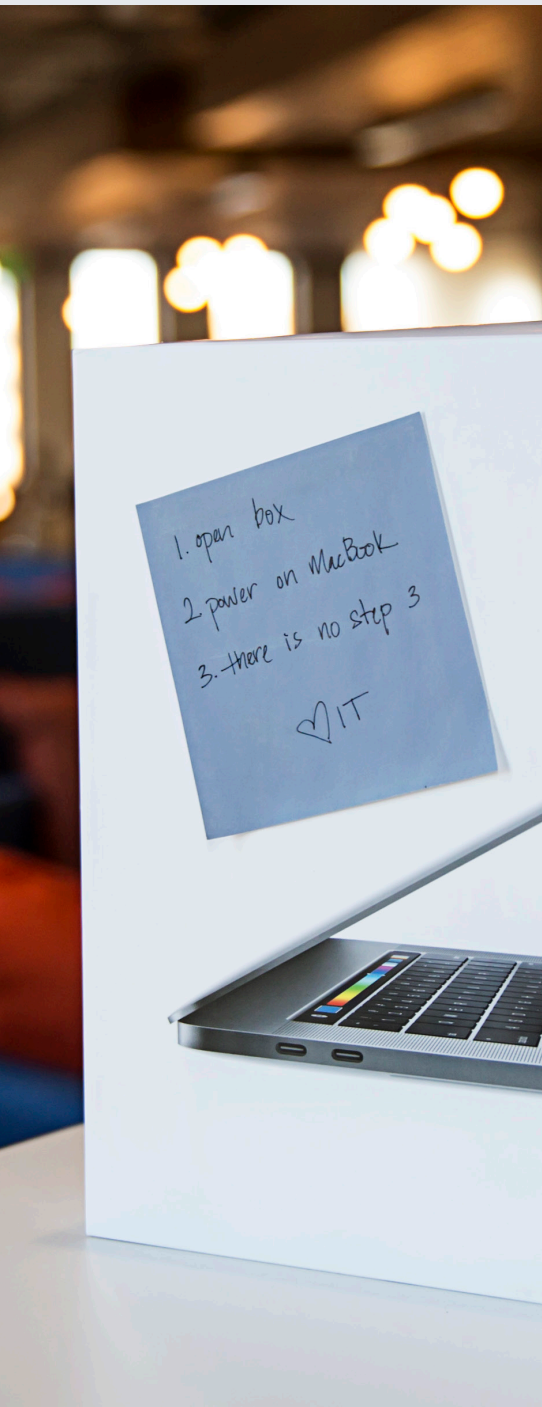 1. open box
2 power on MacBook
3. there is no step 3
♡ IT